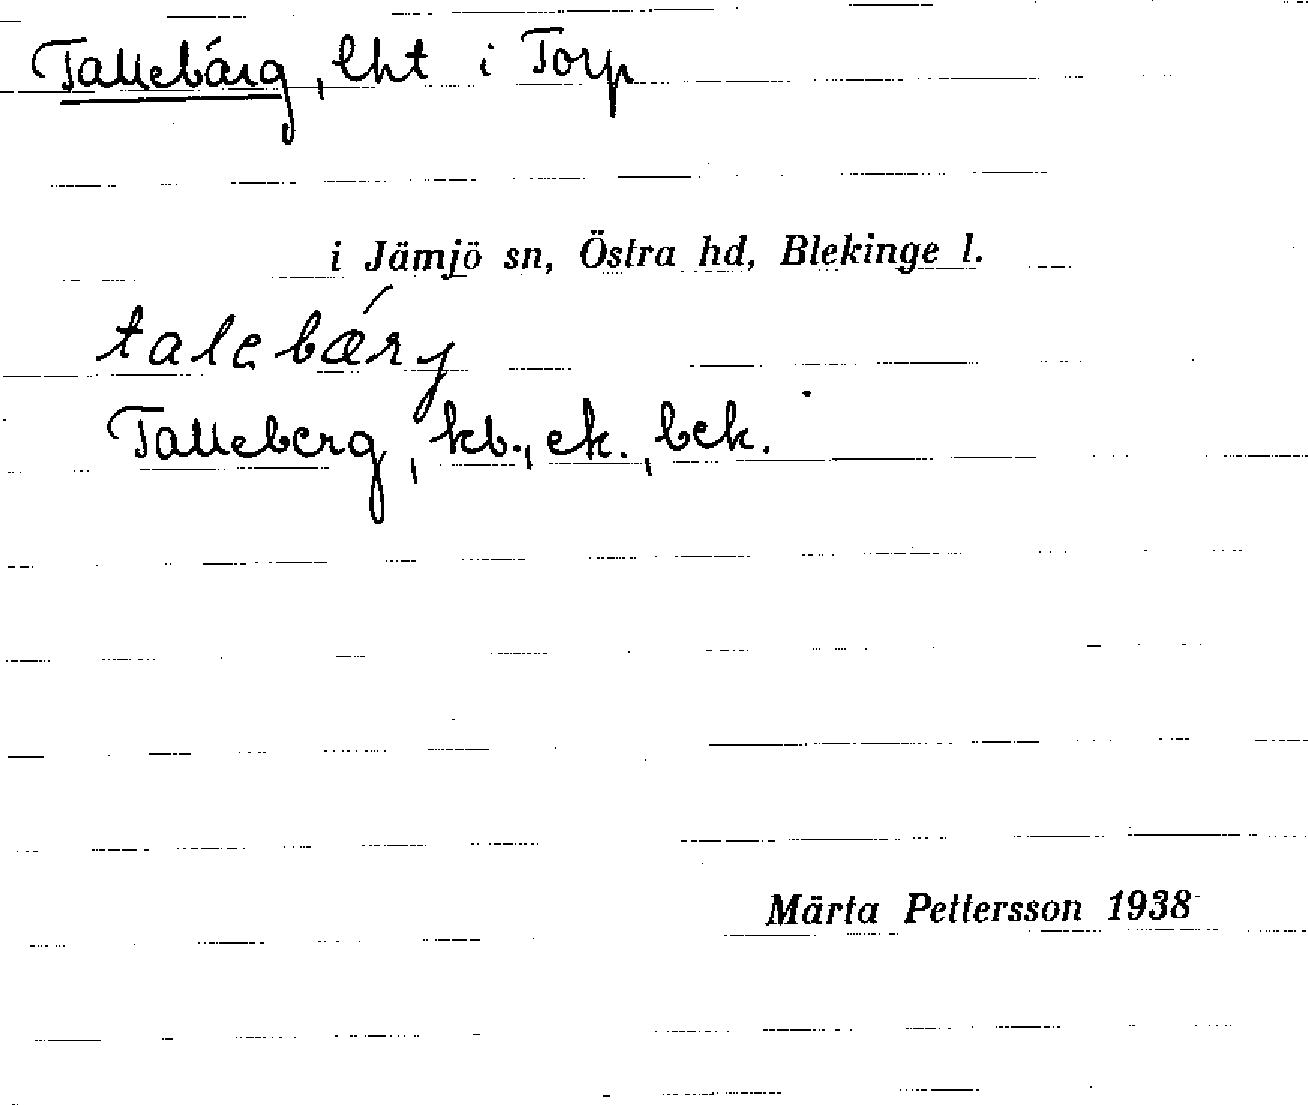 Tallebárg, lht i Torp
i Jämjö sn, Östra hd, Blekinge l.
talebǽrj
Talleberg, kb., ek., bek.
Märta Pettersson 1938